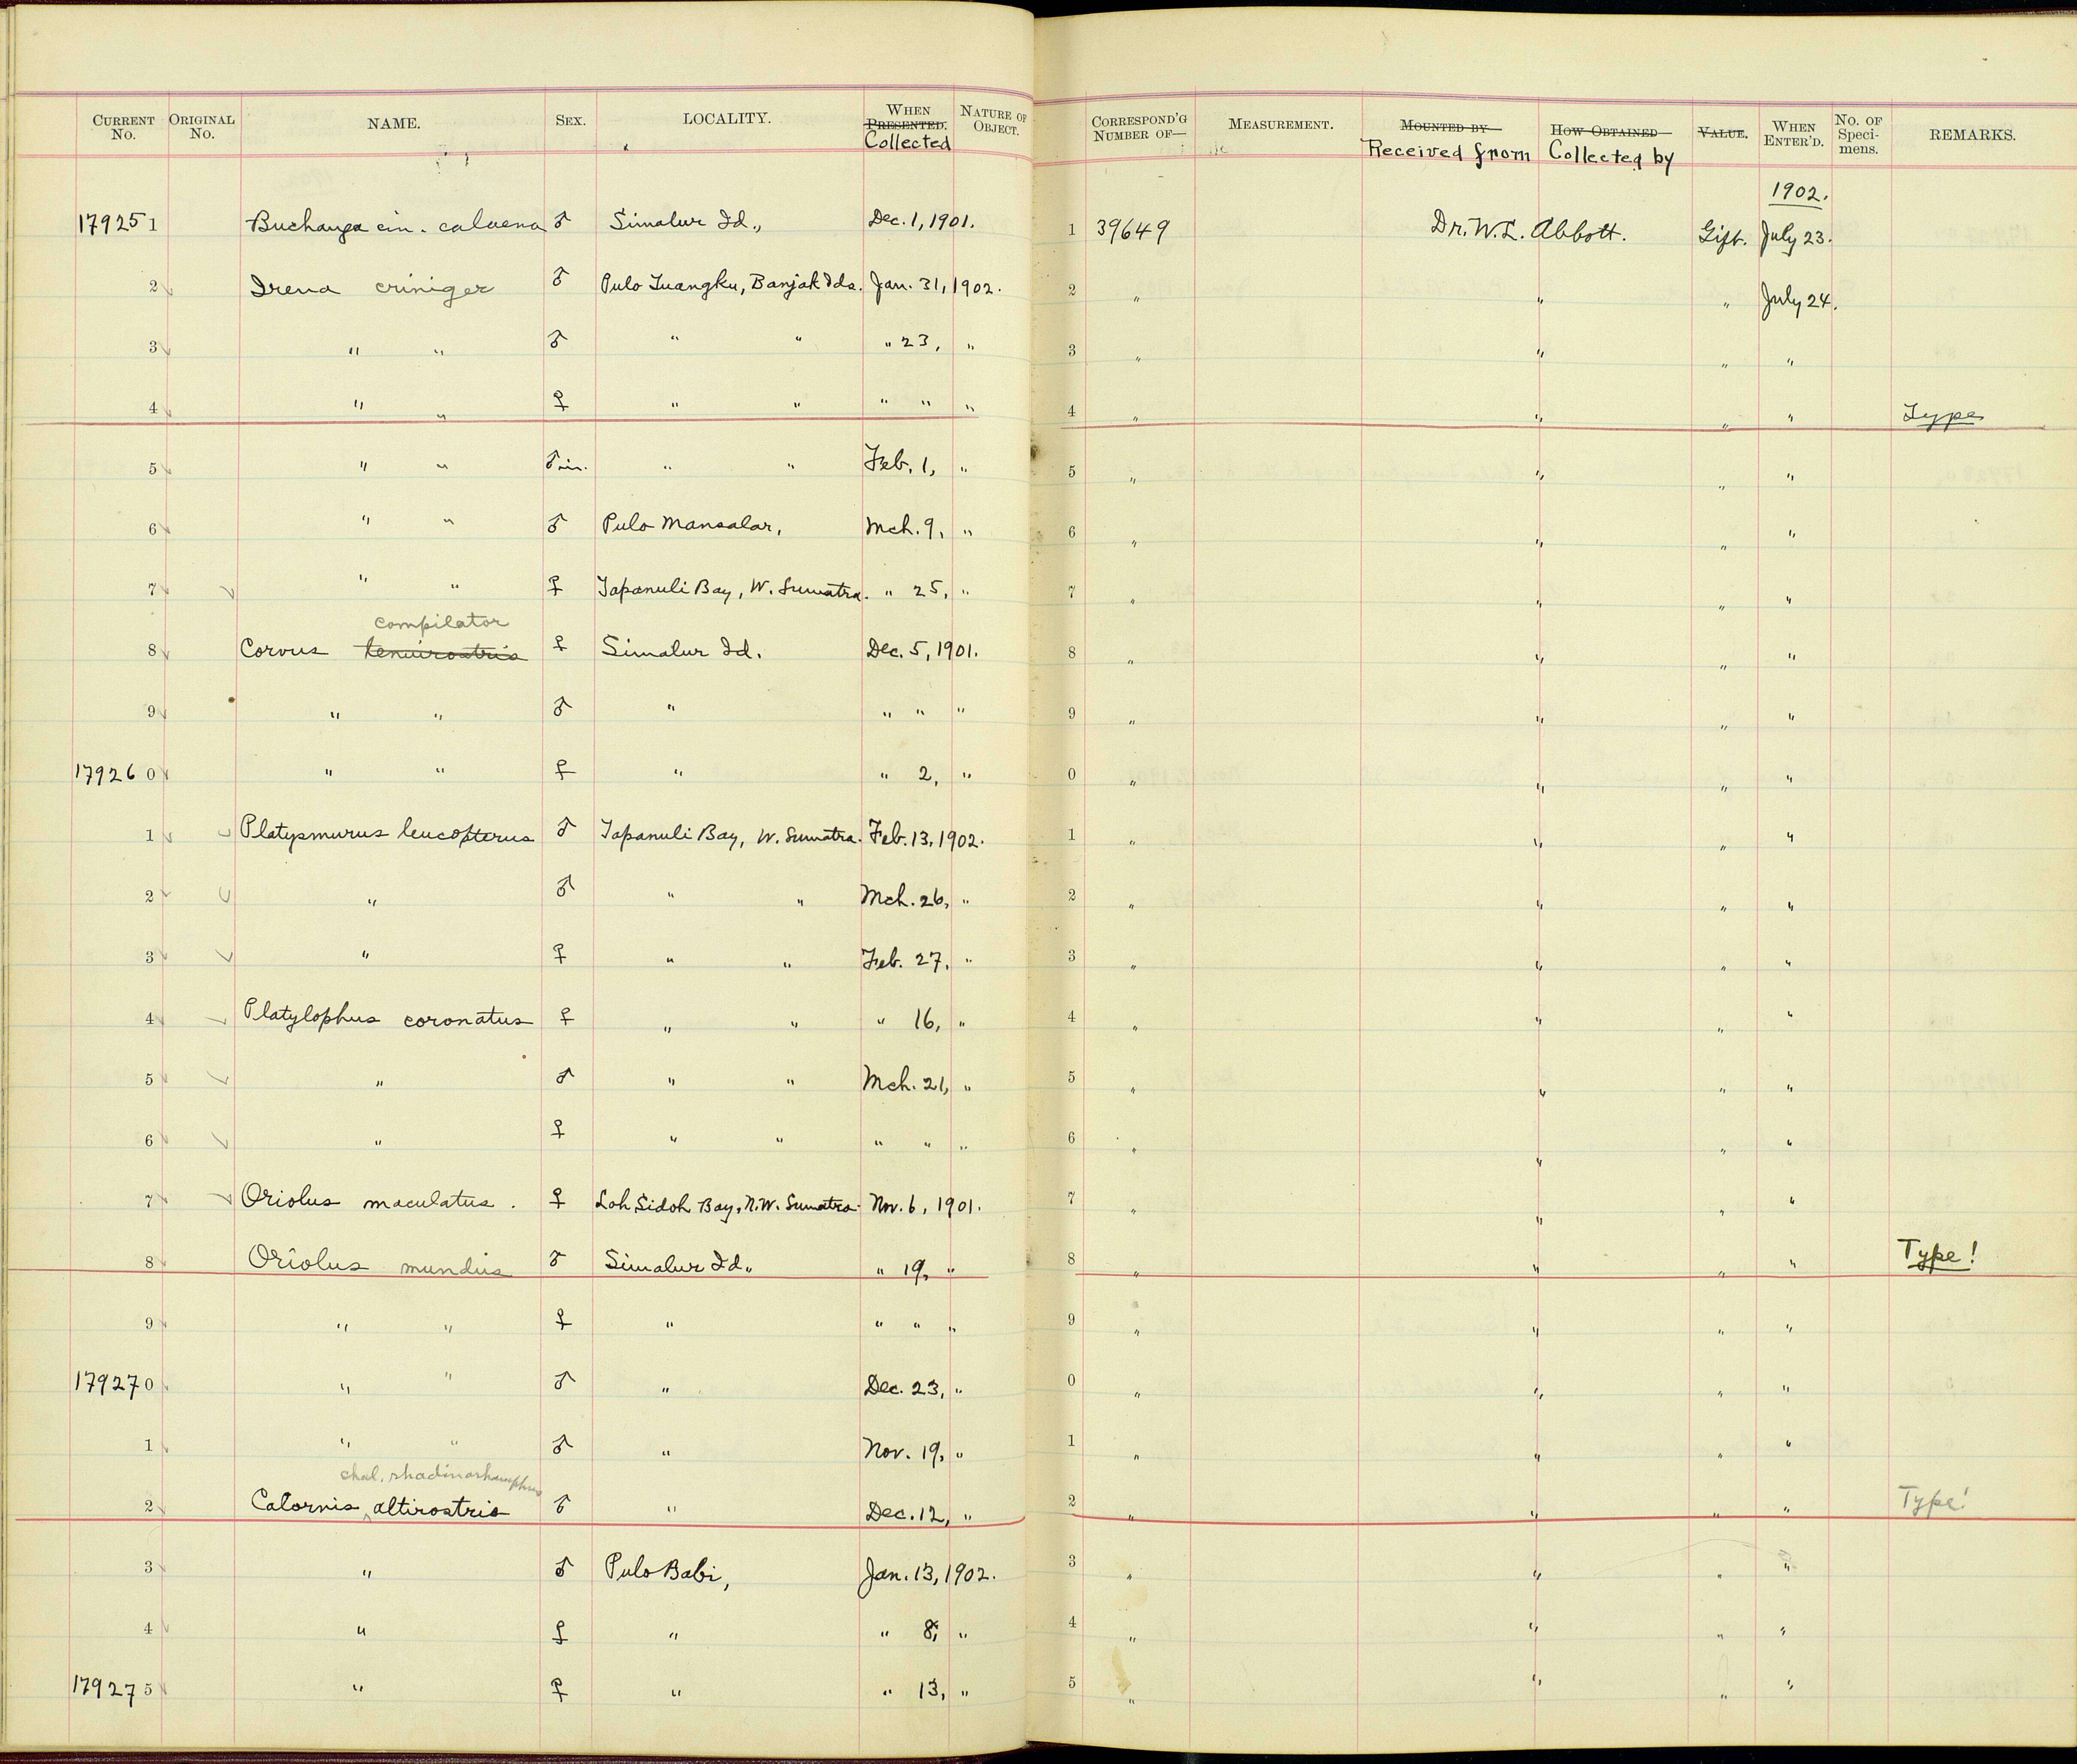 CURRENT No. ORIGINAL No. NAME. SEX. LOCALITY. WHEN PRESENTED. Collected NATURE OF OBJECT. CORRESPOND'G NUMBER OF— MEASUREMENT. MOUNTED BY Received from HOW OBTAINED Collected by VALUE. WHEN ENTER'D. No. OF Speci-mens. REMARKS.
1902.
179251 Buchanga cin. ♂ Simalur Id., Dec. 1, 1901. 1 39649 Dr. W. L. Abbott. Gift. July 23.
2 Irena criniger ♂ Pulo Tuangku, Banjak Ids. Jan. 31, 1902. 2 " " " July 24.
3 " " ♂ " " " 23, " 3 " " " "
4 " " ♀ " " " " " 4 " " " " Type
5 " " ♂ im. " " Feb. 1, " 5 " " " "
6 " " ♂ Pulo Mansalar, Mch. 9, " 6 " " " "
7 " " ♀ Tapanuli Bay, W. Sumatra. " 25, " 7 " " " "
compilator
8 Corvus tenuirostris ♀ Simalur Id. Dec. 5, 1901. 8 " " " "
9 " " ♂ " " " " 9 " " " "
179260 " " ♀ " " 2, " 0 " " " "
1 Platysmurus leucopterus ♂ Tapanuli Bay, W. Sumatra. Feb. 13, 1902. 1 " " " "
2 " ♂ " " Mch. 26, " 2 " " " "
3 " ♀ " " Feb. 27, " 3 " " " "
4 Platylophus coronatus ♀ " " " 16, " 4 " " " "
5 " ♂ " " Mch. 21, " 5 " " " "
6 " ♀ " " " " " 6 " " " "
7 Oriolus maculatus. ♀ Loh Sidoh Bay, N.W. Sumatra. Nov. 6, 1901. 7 " " " "
8 Oriolus mundus ♂ Simalur Id. " 19, " 8 " " " " Type!
9 " " ♀ " " " " 9 " " " "
179270 " " ♂ " Dec. 23, " 0 " " " "
1 " " ♂ " Nov. 19, " 1 " " " "
chal. rhadinorhamphus
2 Calornis altirostris ♂ " Dec. 12, " 2 " " " " Type!
3 " ♂ Pulo Babi, Jan. 13, 1902. 3 " " " "
4 " ♀ " " 8, " 4 " " " "
179275 " ♀ " " 13, " 5 " " " "